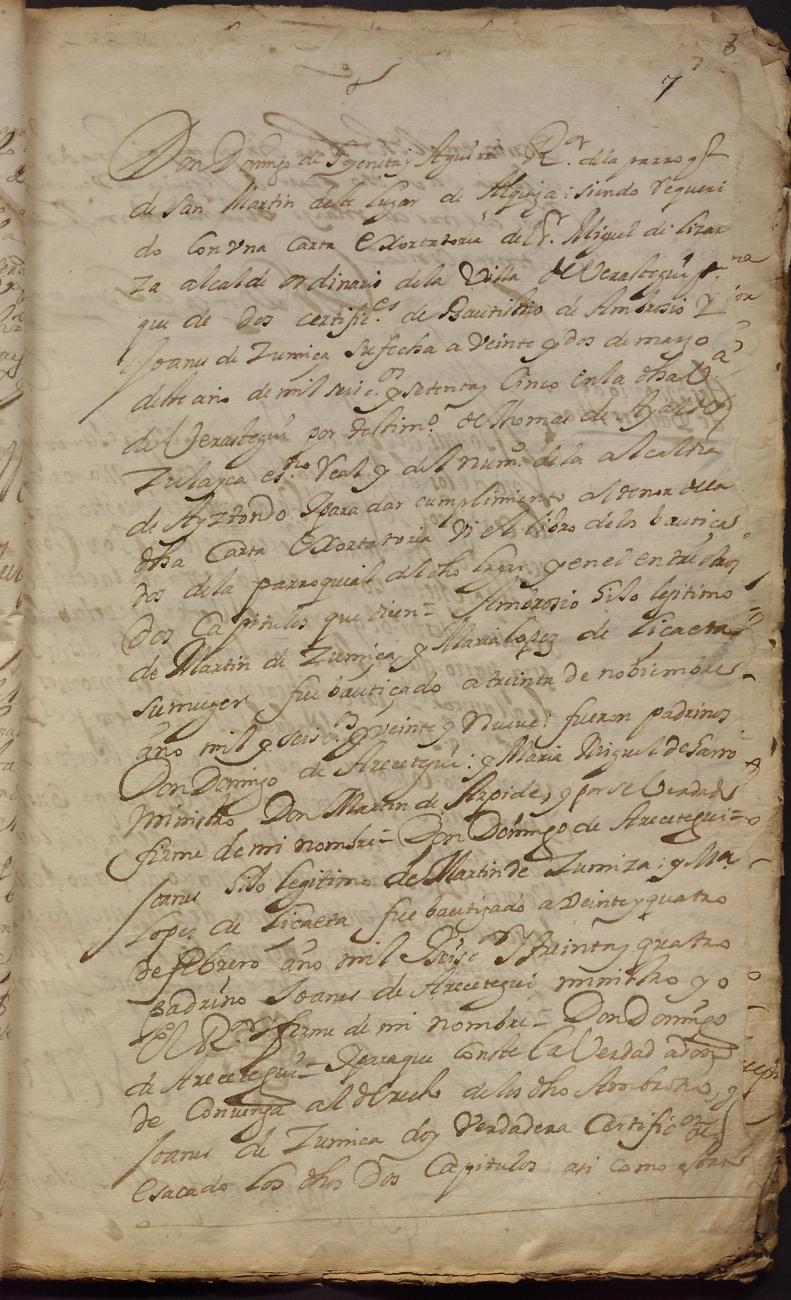 7
Don Domingo de Ygeneta y Aguirre R.or de la parroq.l
de san Martin deste lugar de Alquiza: siendo requeri
do con una carta exortatoria del Sr. Miguel de lizar
za alcalde ordinario de la Villa de Verastegui pa.
que de dos certific.es de Bautismo de Ambrosio y
Joanes de Zumica su fecha a veinte y dos de março
deste año de mil seis c.os y setenta y cinco en la dha V.a
de Verastegui por testim.o de Thomas de Ayaldo
Zulayca es.no real y del num.o de la alcaldia
de Ayztondo y para dar cumplimiento al tenor de la
dha carta exortatoria vi el libro de los bautiça
dos de la parroquial del dho lugar y en el entre otros
dos capitulos que dicen = Ambrosio hijo legitimo
de Martin de Zumica y Maria lopez de licaeta
su muger fue bautiçado a treinta de nobiembre
año mil y seis c.os y veinte y nueve: fueron padrinos
Don Domingo de Arecetegui: y Maria Miguel de Sarro
ministro Don Martin de Arpide, y por ser verdad
firme de mi nombre = Don Domingo de Arecetegui =
Joanes hijo legitimo de Martin de Zumiza: y Ma.
lopez de licaeta fue bautizado a veinte y quatro
de febrero año mil y seis c.os y treinta y quatro
padrino Joanes de Arecetegui ministro yo
el R.or y firme de mi nombre = Don Domingo
de Arecetegui = y para que conste la verdad adonde
de convenga al derecho de los dho Ambrosio, y
Joanes de Zumica doy verdadera certific.on de
e sacado los dhos dos capitulos asi como estan